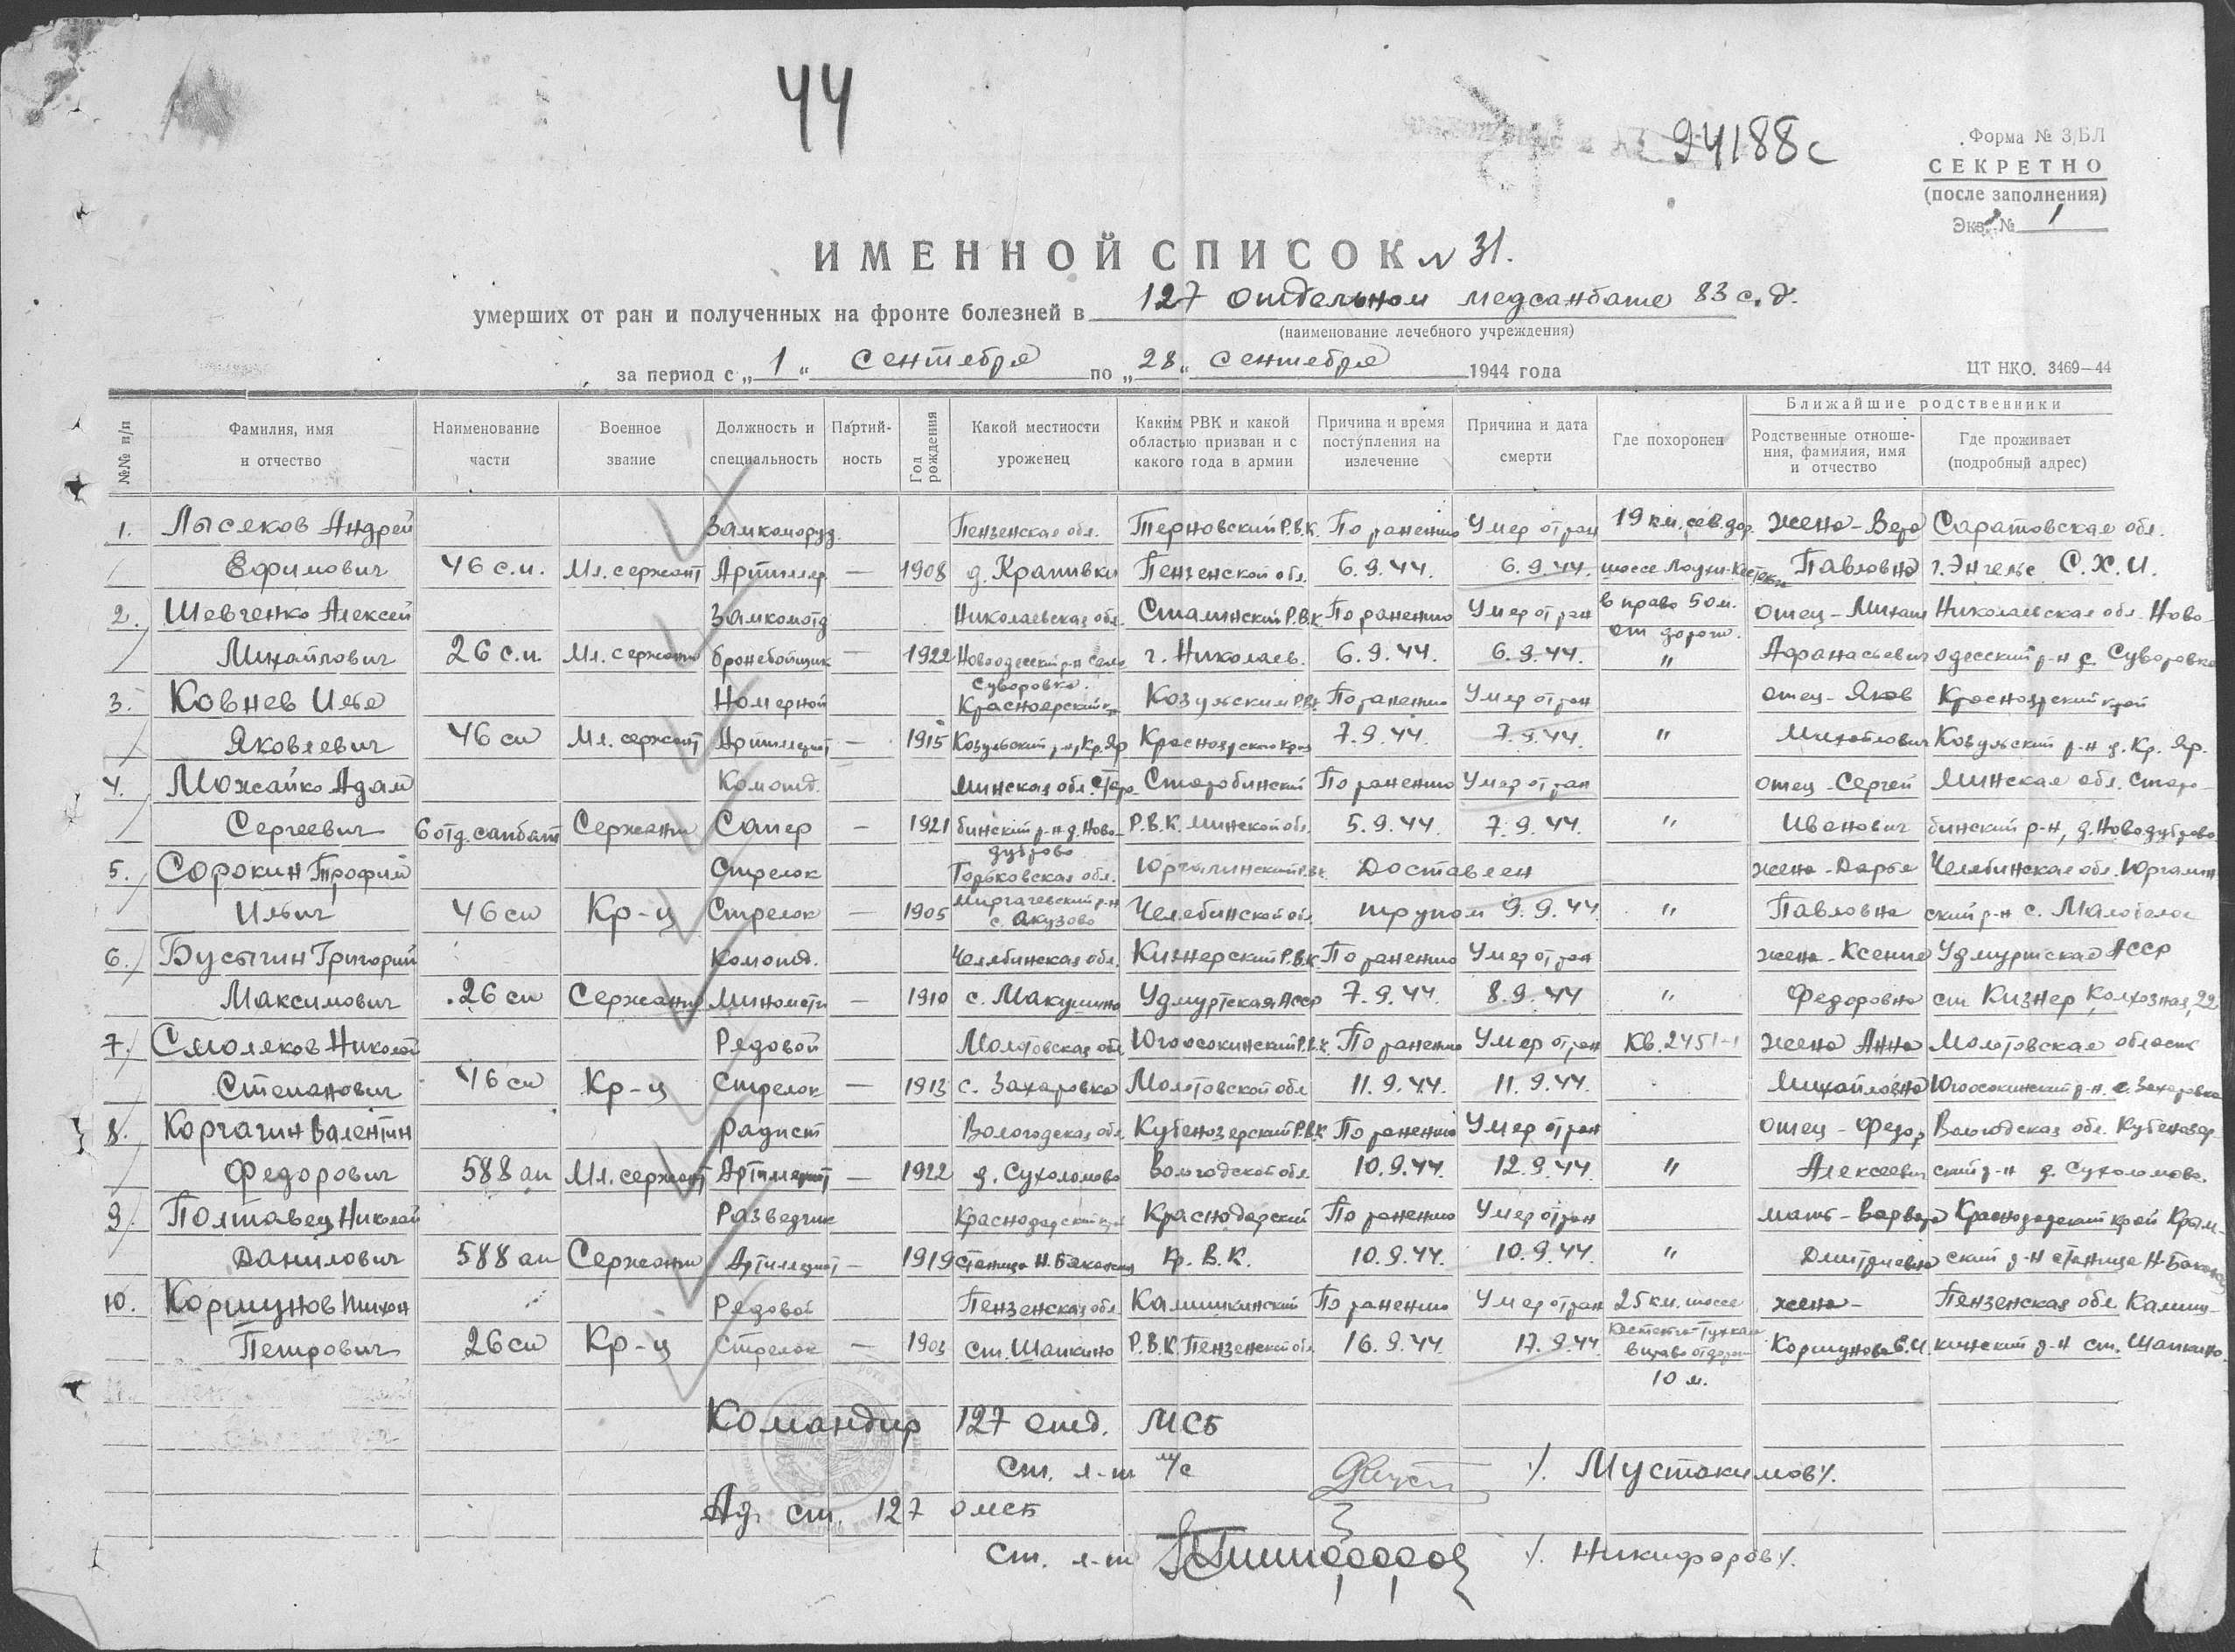 44
94188с
Форма № 3/БЛ
СЕКРЕТНО
(после заполнения)
Экз. № 1
ИМЕННОЙ СПИСОК N 31.
умерших от ран и полученных на фронте болезней в 127 отдельном медсанбате 83 с.д.
(наименование лечебного учреждения)
за период с „1“ Сентября по „28“ Сентября 1944 года
ЦТ НКО. 3469—44
№№ п/п
Фамилия, имя и отчество
Наименование части
Военное звание
Должность и специальность
Партийность
Год рождения
Какой местности уроженец
Каким РВК и какой областью призван и с какого года в армии
Причина и время поступления на излечение
Причина и дата смерти
Где похоронен
Ближайшие родственники
Родственные отношения, фамилия, имя и отчество
Где проживает (подробный адрес)
1. Лысяков Андрей Замкоморуд. Пензенская обл. Терновский Р.В.К. По ранению Умер от ран 19 км. сев. дор. жена - Вера Саратовская обл.
Ефимович 46 с.п. Мл. сержант Артиллер. — 1908 д. Крапивки Пензенской обл. 6.9.44. 6.9.44. шоссе Лоухи-Кестеньга Павловна г. Энгельс С.Х.И.
2. Шевченко Алексей Замкомотд Николаевская обл. Сталинский Р.В.К. По ранению Умер от ран в право 50 м. отец - Михаил Николаевская обл. Ново-
от дороги.
Михайлович 26 с.п. Мл. сержант бронебойщик — 1922 Новоодесский р-н село г. Николаев. 6.9.44. 6.9.44. " Афанасьевич одесский р-н с. Суворовка
Суворовка.
3. Ковнев Илья Номерной Красноярский кр. Козульским РВК По ранению Умер от ран отец - Яков Красноярский край
Яковлевич 46 сп Мл. сержант Артиллерист — 1915 Козульский р-н, Кр. Яр Красноярского края 7.9.44. 7.9.44. " Михайлович Козульский р-н д. Кр. Яр.
4. Можейко Адам Комотд. Минская обл. Старо- Старобинский По ранению Умер от ран отец - Сергей Минская обл. Старо-
Сергеевич 6 отд. сапбат Сержант Сапер — 1921 бинский р-н д. Ново- Р.В.К. Минской обл. 5.9.44. 7.9.44. " Иванович бинский р-н, д. Новодуброво
дуброво
5. Сорокин Трофим Стрелок Горьковская обл. Юргалинский РВК Доставлен жена - Дарья Челябинская обл. Юргалин-
Ильич 46 сп Кр-ц Стрелок — 1905 с. Акузово Челябинской обл. трупом 9.9.44. " Павловна ский р-н с. Малобелое
6. Бусыгин Григорий Комотд. Челябинская обл. Кизнерский Р.В.К. По ранению Умер от ран жена - Ксения Удмуртская АССР
Максимович 26 сп Сержант Минометч — 1910 с. Макушино Удмуртская АССР 7.9.44. 8.9.44 " Федоровна ст. Кизнер Колхозная, 22
7. Смоляков Николай Рядовой Молотовская обл Югоосокинский Р.В.К. По ранению Умер от ран Кв. 2451-1 жена Анна Молотовская область
Степанович 46 сп Кр-ц Стрелок — 1913 с. Захаровка Молотовской обл 11.9.44. 11.9.44. Михайловна Югоосокинский р-н. с. Захаровка
8. Корчагин Валентин радист Вологодская обл. Кубеноозерский РВК По ранению Умер от ран отец - Федор Вологодская обл. Кубеноозер-
Федорович 588 ап Мл. сержант Артиллерист — 1922 д. Сухоломово Вологодской обл. 10.9.44. 12.9.44. " Алексеевич ский р-н д. Сухоломово.
9. Полтавец Николай Разведчик Краснодарский край Краснодарский По ранению Умер от ран мать - Варвара Краснодарский край Крым-
Данилович 588 ап Сержант Артиллерист — 1919 станица Н. Баканская Р.В.К. 10.9.44. 10.9.44. " Дмитриевна ский р-н станица Н-Баканск
10. Коршунов Тихон Рядовой Пензенская обл. Камешкинский По ранению Умер от ран 25 км. шоссе жена - Пензенская обл. Камеш-
Петрович 26 сп Кр-ц Стрелок — 1903 ст. Шапкино Р.В.К. Пензенской обл. 16.9.44. 17.9.44. вправо от дороги Коршунова Е.И. кинский р-н ст. Шапкино.
10 м.
Командир 127 отд. МСБ
Ст. л-т м/с /. Мустакимов/.
Ад. ст. 127 омсб
Ст. л-т /. Никифоров/.